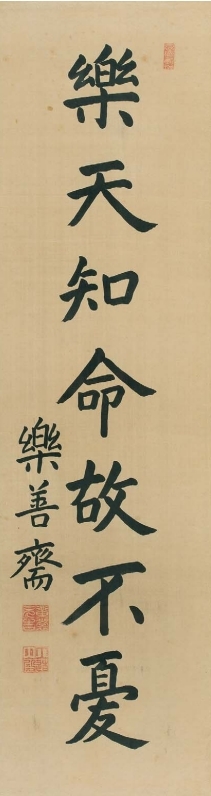 樂天知命故不憂
樂善齋